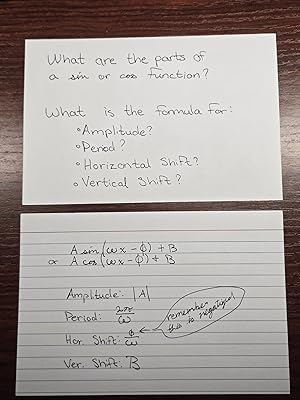 What are the parts of
a sin or cos function?
What is the formula for:
• Amplitude?
• Period?
• Horizontal Shift?
• Vertical Shift?
A sin(ωx - φ) + B
or A cos(ωx - φ) + B
Amplitude: |A|
Period: 2π/ω
Hor. Shift: φ/ω ← remember this is negative!
Ver. Shift: B